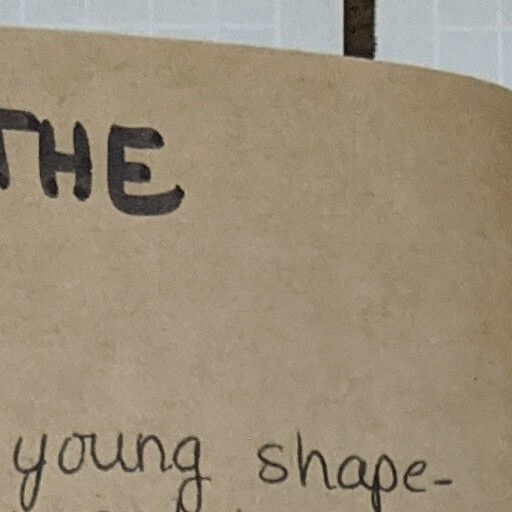 THE
young shape-